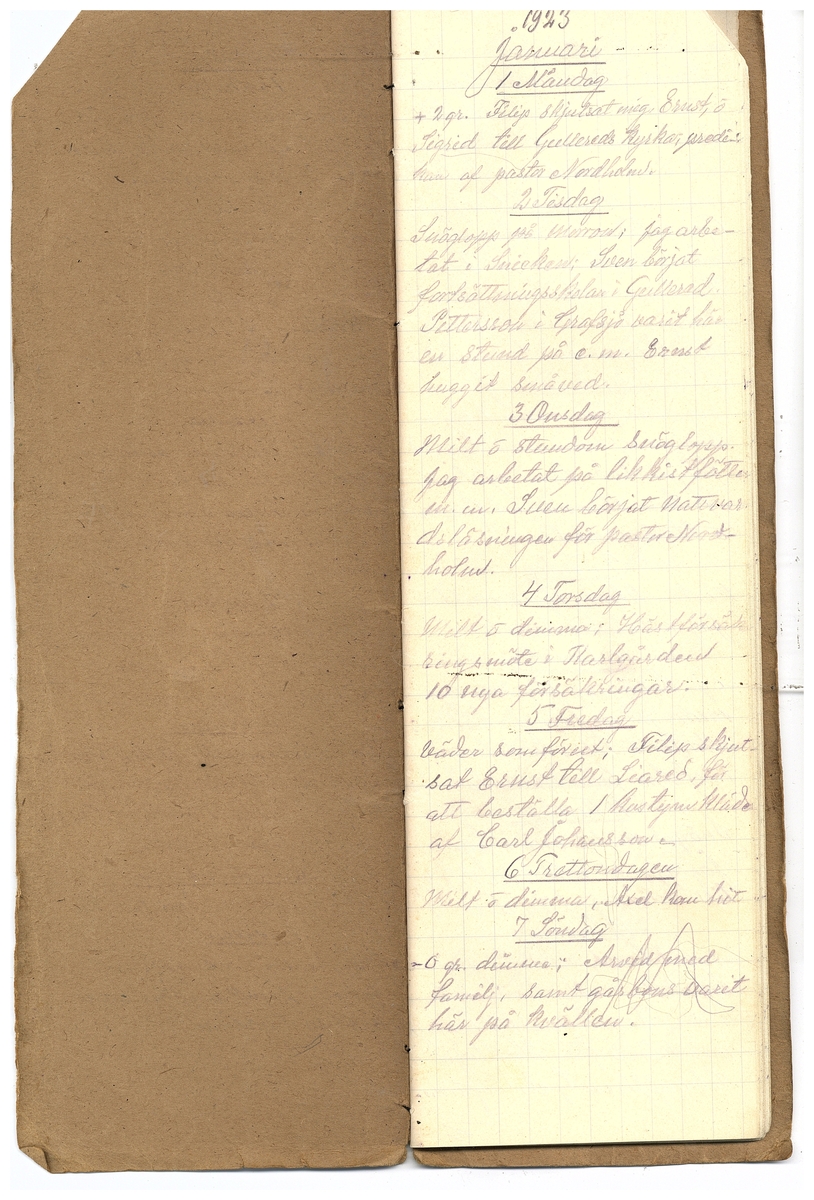 1923
Januari
1 Måndag
+ 2 gr. Filip skjutsat mig Ernst, o
Sigrid till Gullereds kyrka, predi-
kan af pastor Nordholm.
2 Tisdag
Snöglopp på morron; jag arbe-
tat i Snicken; Sven börjat
fortsättningsskolan i Gullered.
Pettersson i Grafsjö varit här
en stund på e.m. Ernst
huggit småved.
3 Onsdag
Milt o stundom snöglopp.
jag arbetat på likkistfötter
m.m. Sven börjat nattvar-
dsläsningen för pastor Nord-
holm.
4 Torsdag
Milt o dimma; Hästförsäk
ringsmöte i Karlgården
10 nya försäkringar.
5 Fredag
Väder som förut; Filip skjut-
sat Ernst till Liared, för
att beställa 1 kostym kläder
af Carl Johansson.
6 Trettondagen
Milt o dimma, Axel kom hit
7 Söndag
-0 gr. dimma; Arvid med
familj, samt varit
här på kvällen.